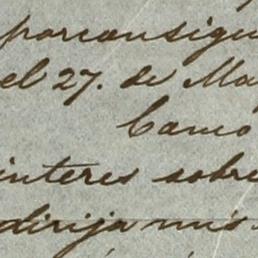 porconsigu
el 27. de Ma
Como
interes sobre
dirija mis